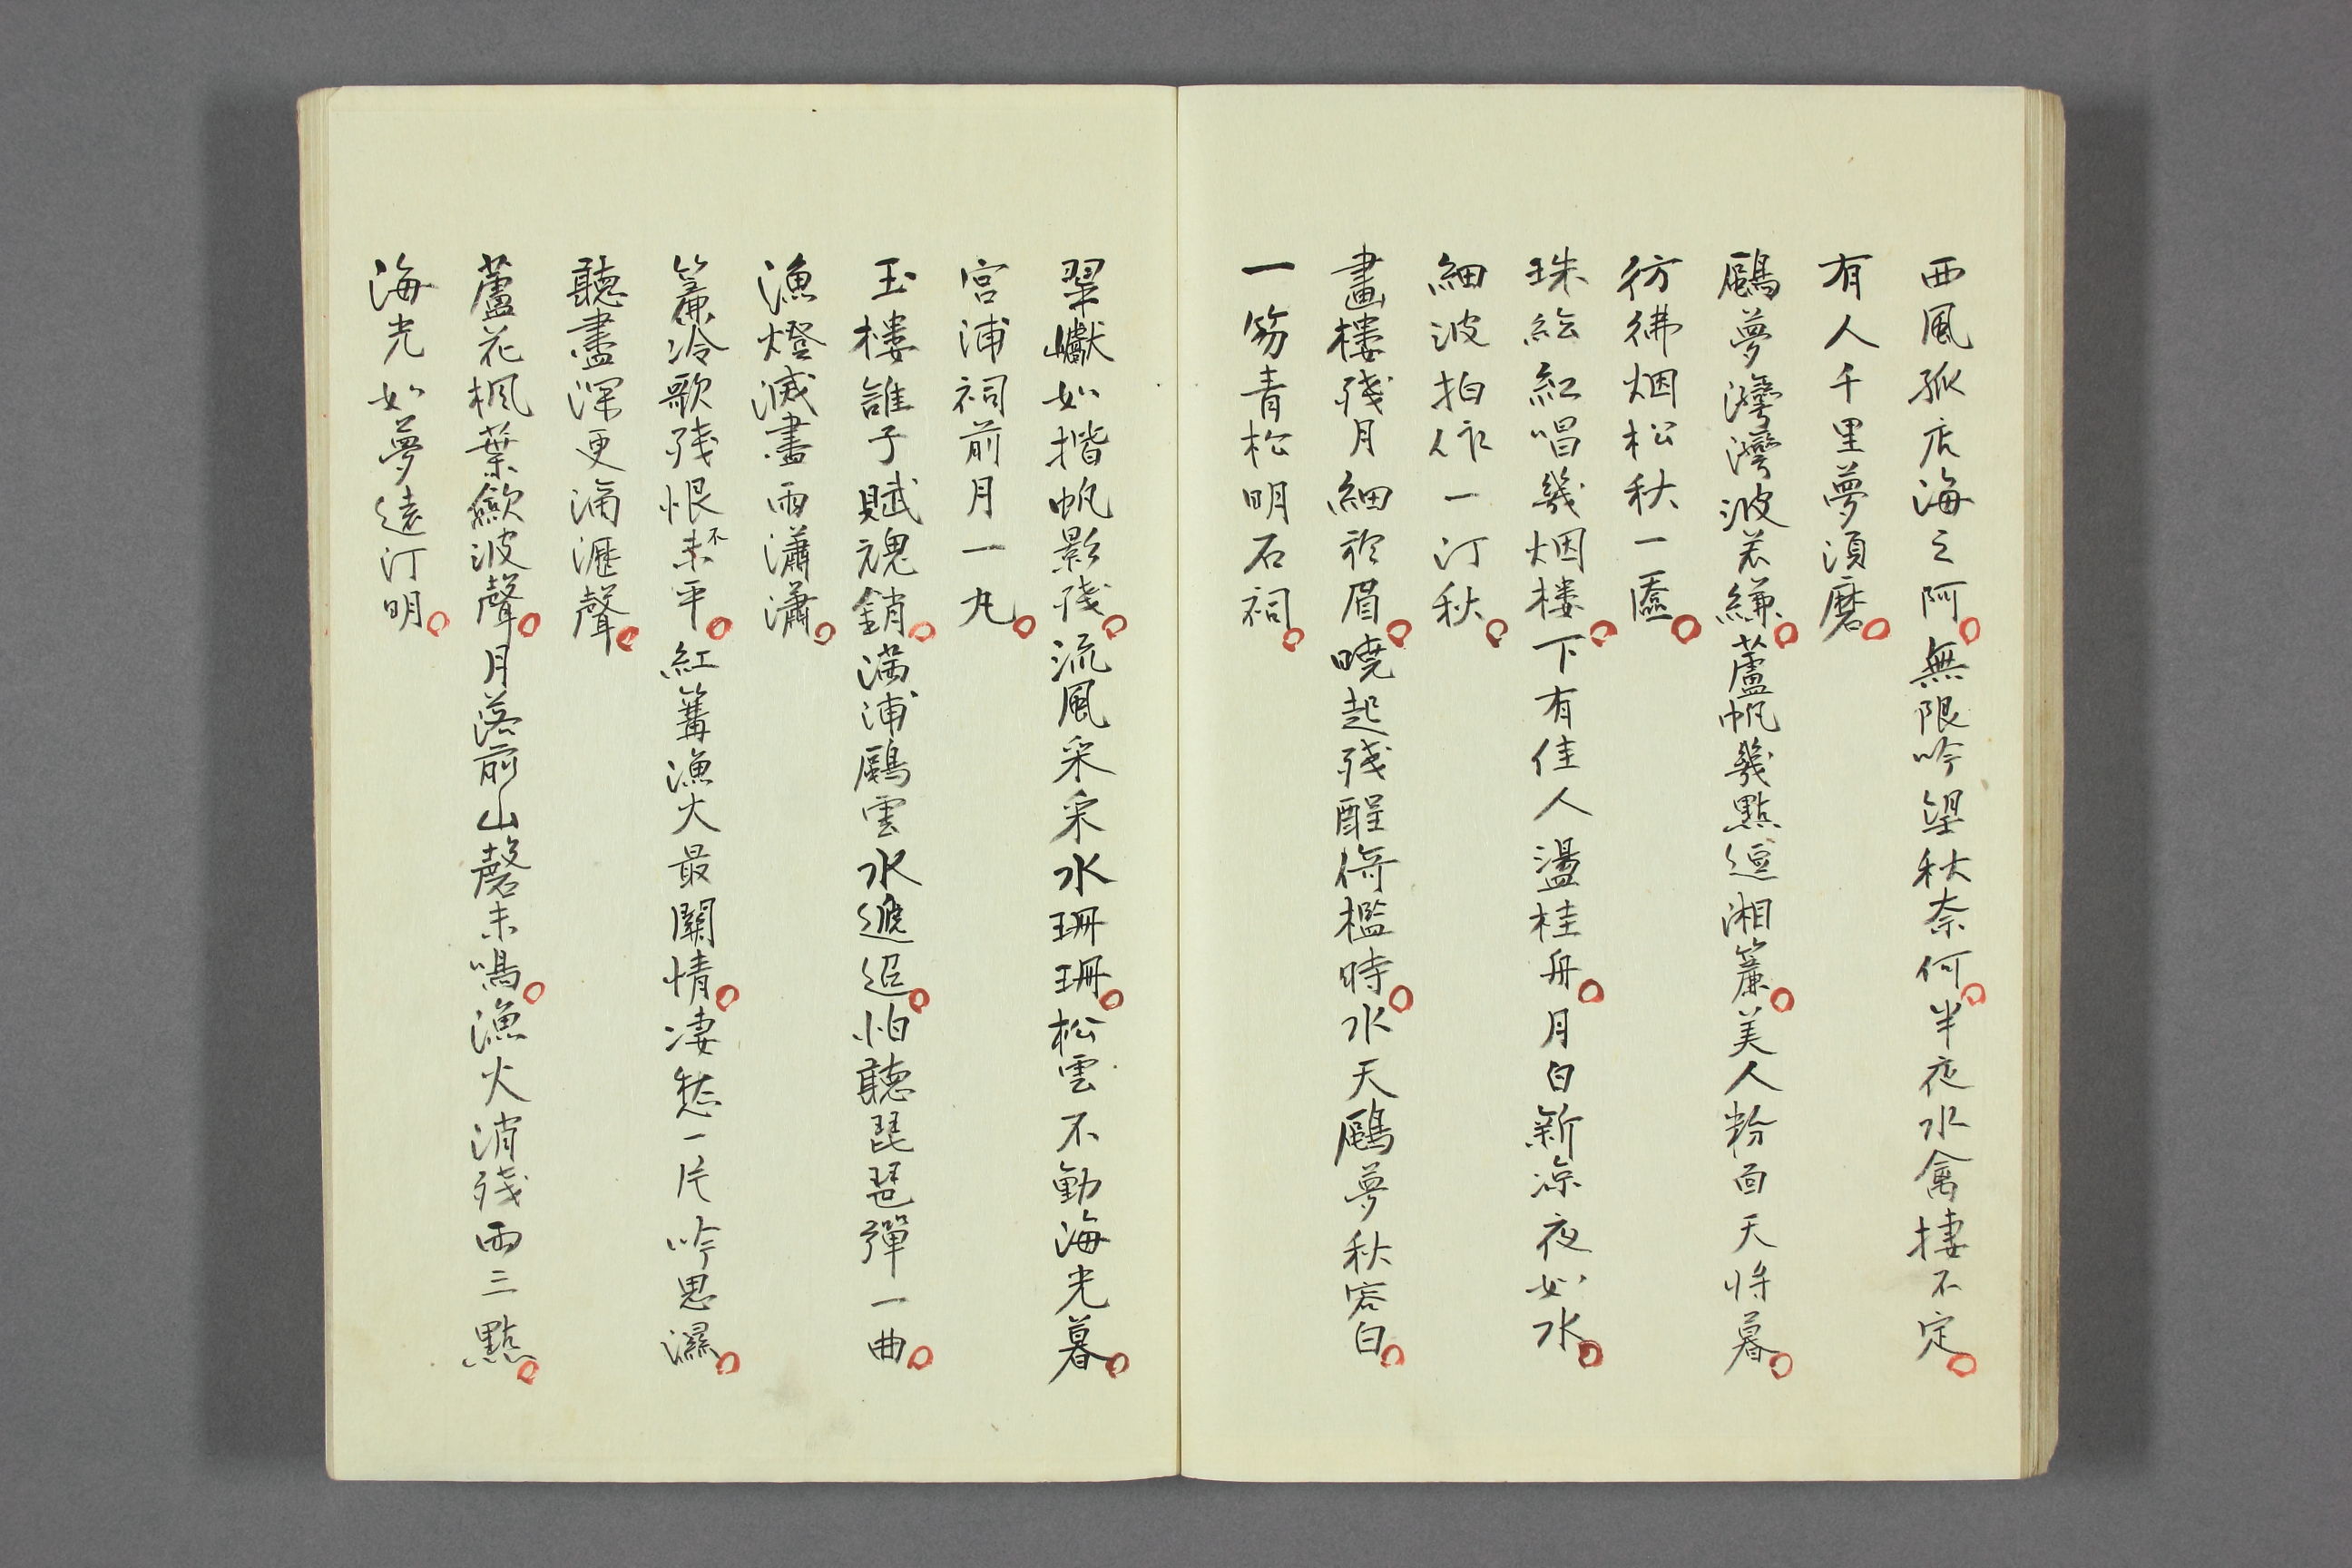 西風孤店海之阿無限吟望秋奈何半夜水禽棲不定
有人千里夢須磨
鷗夢灣灣波若縑蘆帆幾點逗湘簾美人粉面天将暮
彷彿烟松秋一匳
珠絵紅唱幾烟楼下有佳人盪桂舟月白新涼夜如水
細波拍作一汀秋
畫樓残月細於眉曉起残酲倚檻時水天鷗夢秋容白
一笏青松明石祠
翠巘如揩帆影残流風采采水珊珊松雲不動海光暮
宮浦祠前月一丸
玉楼誰子賦魂銷満浦鷗雲水遞迢怕聽琵琶彈一曲
漁燈滅盡雨瀟瀟
簾冷歌残恨不平紅篝漁火最關情凄愁一片吟思濕
聽盡深更滴瀝聲
蘆花楓葉歛波聲月落前山磬未鳴漁火消残両三點
海光如夢遠汀明